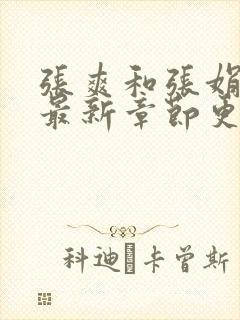 張爽和張娟
最新章節更
科迪·卡曾斯